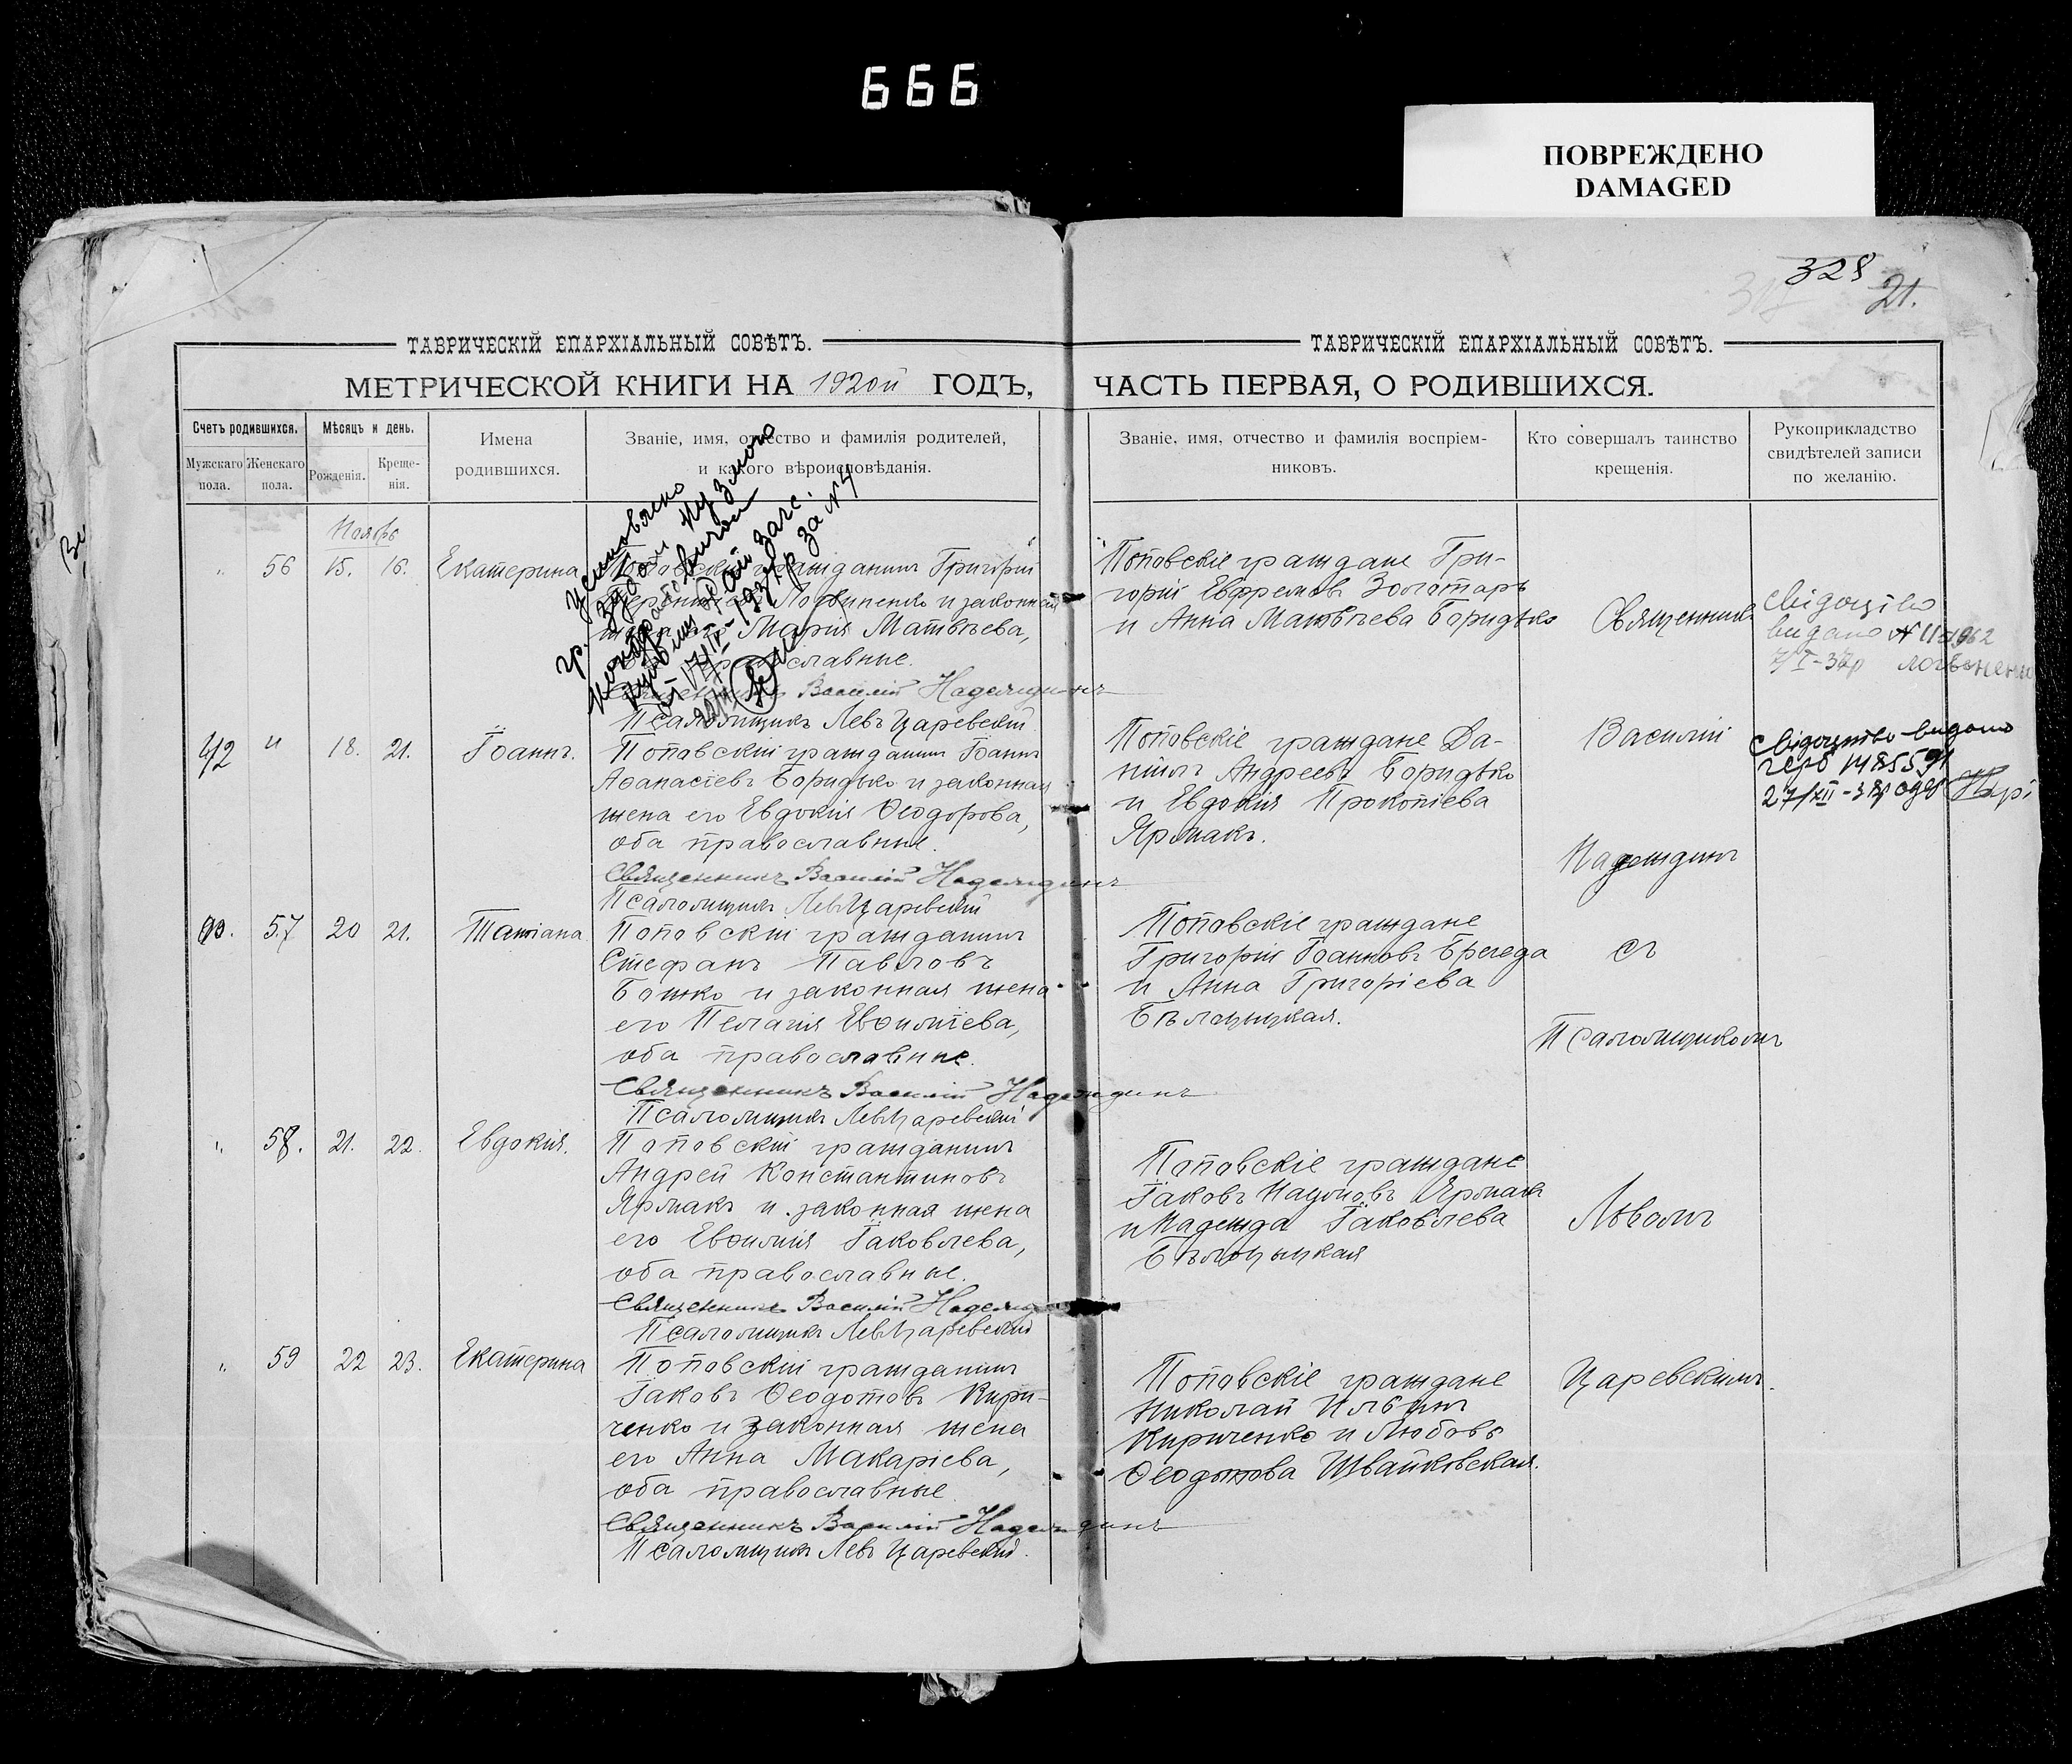 666
ПОВРЕЖДЕНО
DAMAGED
328
317
21.
ТАВРИЧЕСКІЙ ЕПАРХІАЛЬНЫЙ СОВѢТЪ.
МЕТРИЧЕСКОЙ КНИГИ НА 1920й ГОДЪ,
Счетъ родившихся.
Мѣсяцъ и день.
Имена родившихся.
Званіе, имя, отчество и фамилія родителей,
и какого вѣроисповѣданія.
Мужскаго пола.
Женскаго пола.
Рожденія.
Креще-
нія.
ТАВРИЧЕСКІЙ ЕПАРХІАЛЬНЫЙ СОВѢТЪ.
ЧАСТЬ ПЕРВАЯ, О РОДИВШИХСЯ.
Званіе, имя, отчество и фамилія воспріем-
никовъ.
Кто совершалъ таинство
крещенія.
Рукоприкладство
свидѣтелей записи
по желанію.
Ноябрь
" 56 15. 16. Екатерина
Поповскій гражданинъ Григорій
Логвиненко и законная
жена его Марія Матвѣева,
православные.
Священникъ Василій Надеждинъ
Псаломщикъ Левъ Царевскій
Поповскіе граждане Гри-
горій Ефремовъ Золотарь
и Анна Матвѣева Боридько
Священникъ
Свідоцтво
видано №
7/I-37р
42 " 18. 21. Іоаннъ.
Поповскій гражданинъ Іоаннъ
Аѳанасіевъ Боридько и законная
жена его Евдокія Ѳеодорова,
оба православные.
Священникъ Василій Надеждинъ
Псаломщикъ Левъ Царевскій
Поповскіе граждане Да-
ніилъ Андреевъ Боридько
и Евдокія Прокопіева
Ярмакъ.
Василій
Надеждинъ
Свідоцтво видано
27/XII
57 20 21. Татіана
Поповскій гражданинъ
Стефанъ Павловъ
Божко и законная жена
его Пелагія Евѳиміева,
оба православные.
Священникъ Василій Надеждинъ
Псаломщикъ Левъ Царевскій
Поповскіе граждане
Григорій Іоанновъ Брегеда
и Анна Григоріева
Бѣлоцицкая.
съ
Псаломщикомъ
" 58. 21. 22. Евдокія.
Поповскій гражданинъ
Андрей Константиновъ
Ярмакъ и законная жена
его Евѳимія Іаковлева,
оба православные.
Священникъ Василій Надежд
Псаломщикъ Левъ Царевскій
Поповскіе граждане
Іаковъ Наумовъ Ярмакъ
и Надежда Іаковлева
Бѣлоцыцкая
Львомъ
" 59 22 23. Екатерина
Поповскій гражданинъ
Іаковъ Ѳеодотовъ Кири-
ченко и законная жена
его Анна Макаріева,
оба православные
Священникъ Василій Надеждинъ
Псаломщикъ Левъ Царевскій.
Поповскіе граждане
Николай Ильинъ
Кириченко и Любовь
Ѳеодотова Швайковская.
Царевскимъ.